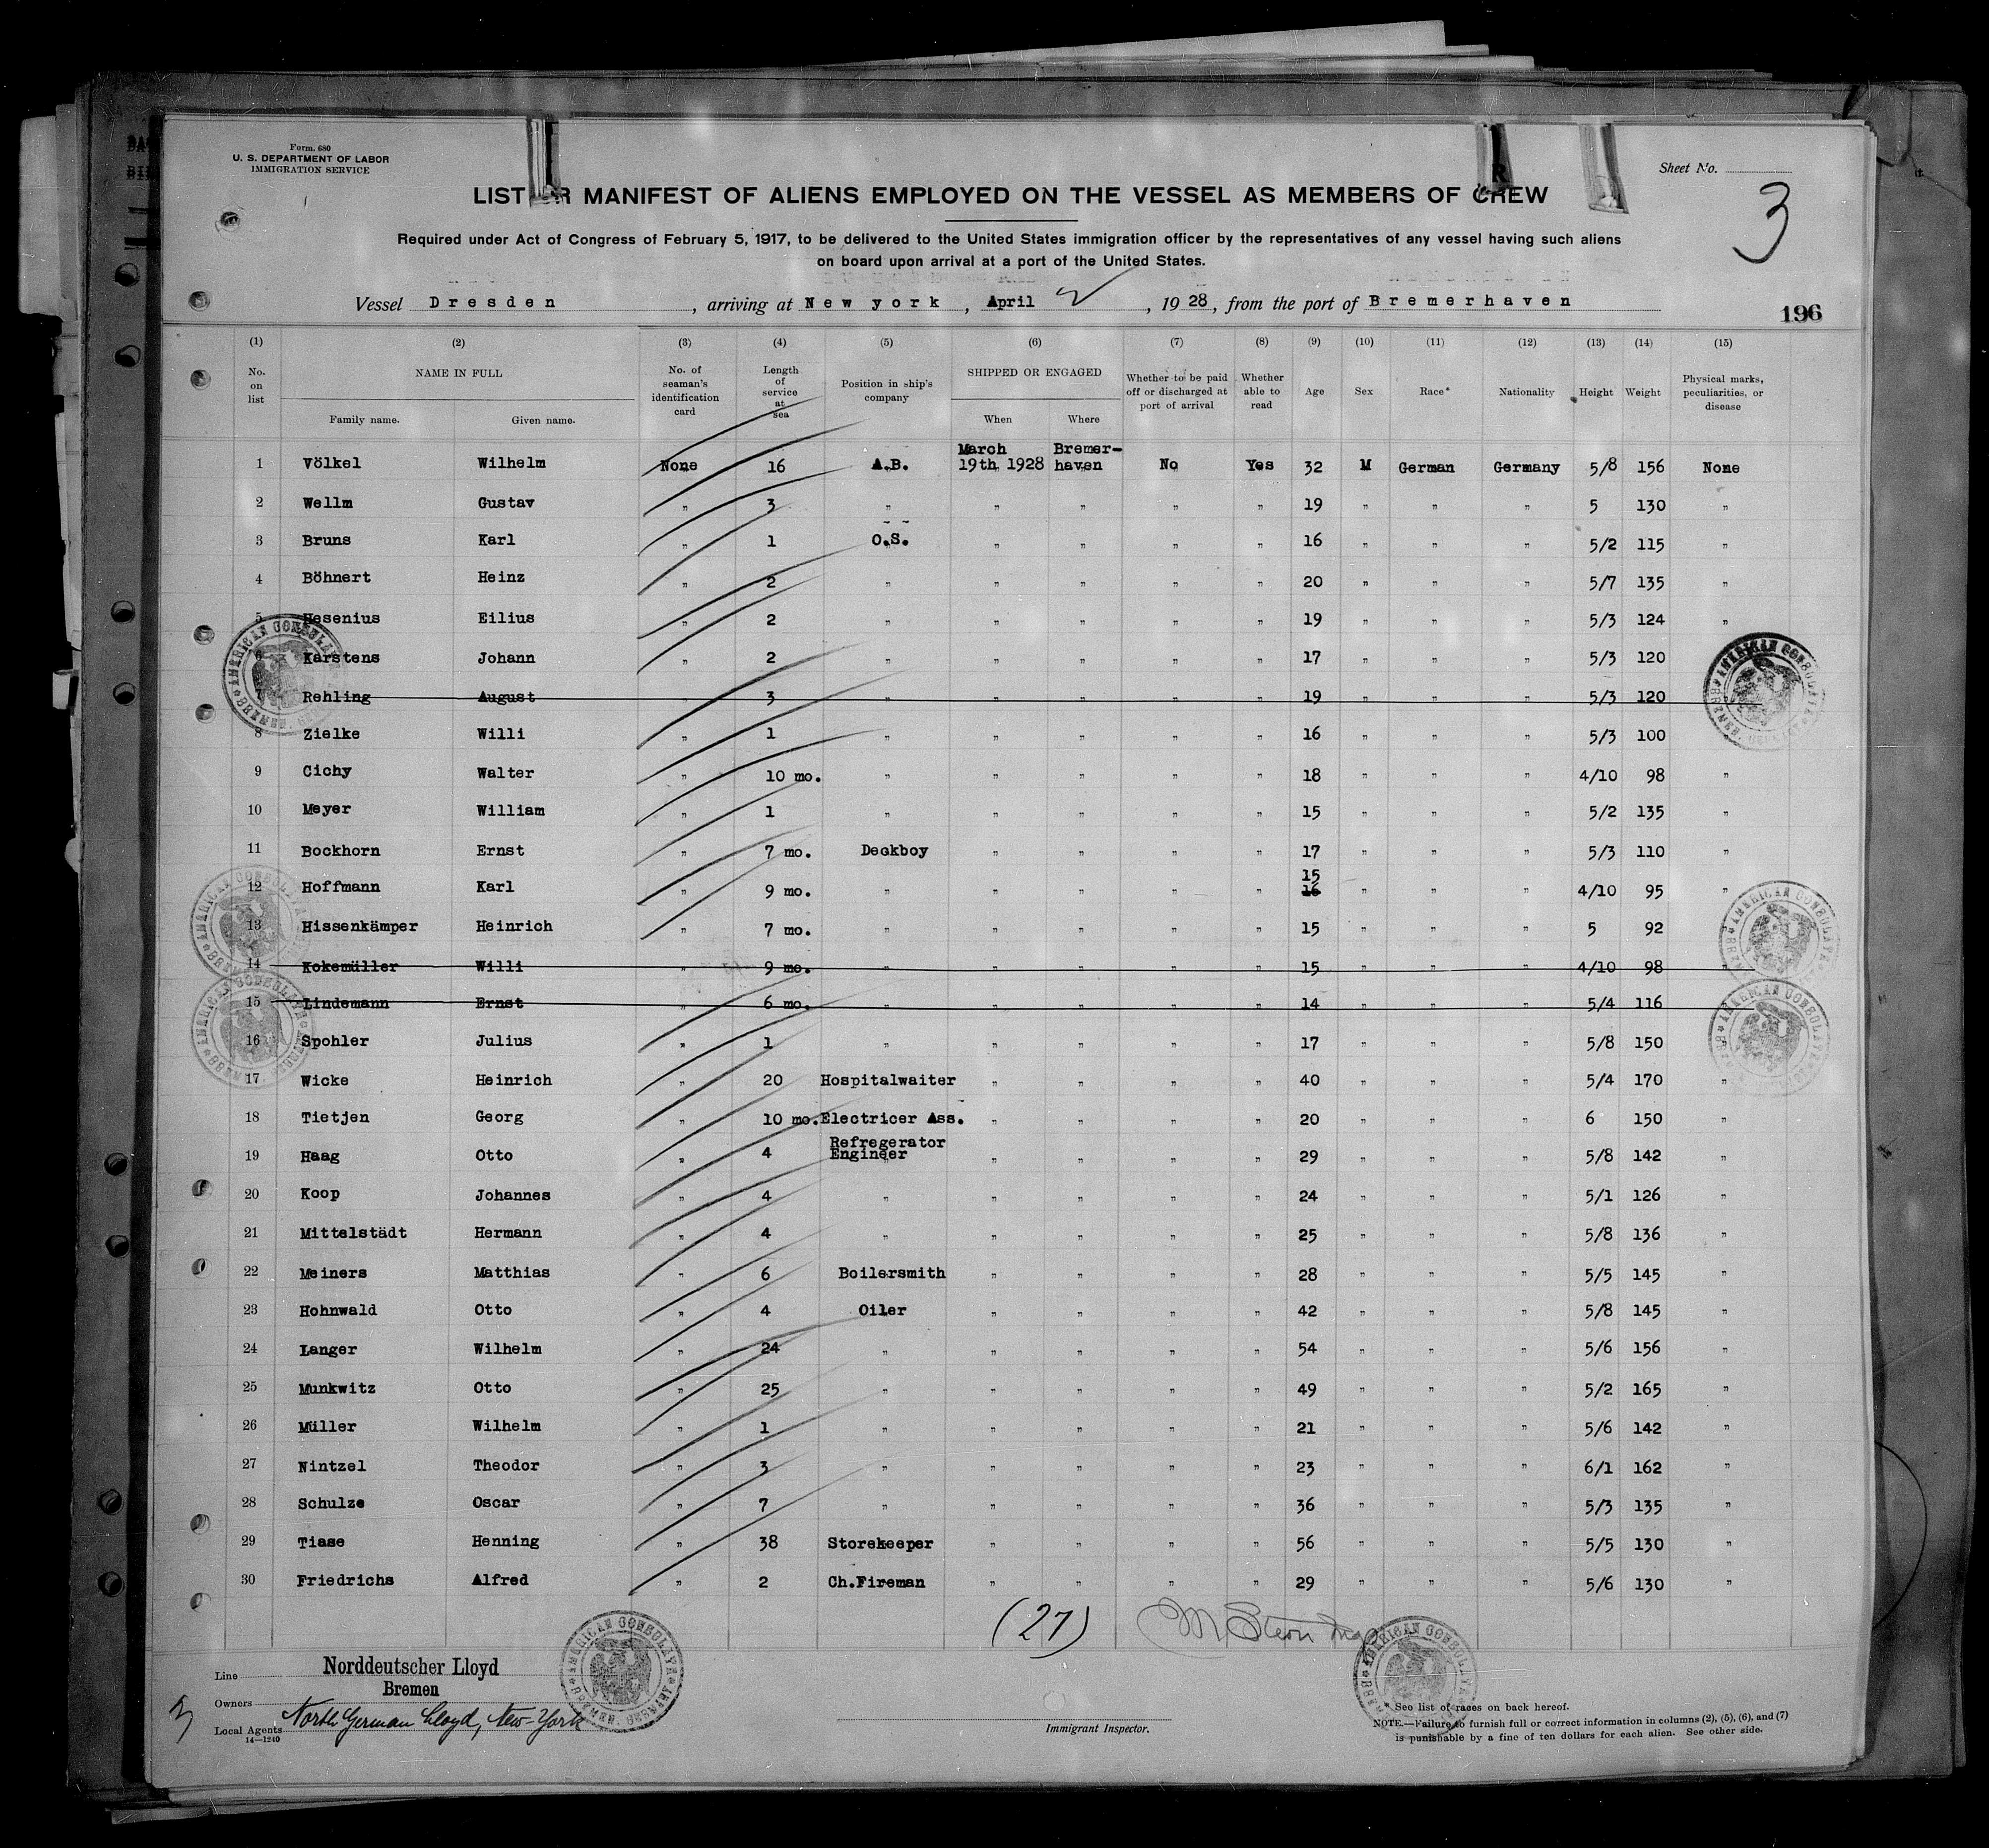 Form. 680
U. S. DEPARTMENT OF LABOR
IMMIGRATION SERVICE
Sheet No.
3
LIST OR MANIFEST OF ALIENS EMPLOYED ON THE VESSEL AS MEMBERS OF CREW
Required under Act of Congress of February 5, 1917, to be delivered to the United States immigration officer by the representatives of any vessel having such aliens
on board upon arrival at a port of the United States.
Vessel Dresden, arriving at New york, April 2, 1928, from the port of Bremerhaven
196
(1) (2) (3) (4) (5) (6) (7) (8) (9) (10) (11) (12) (13) (14) (15)
No. on list NAME IN FULL Family name. Given name. No. of seaman's identification card Length of service at sea Position in ship's company SHIPPED OR ENGAGED When Where Whether to be paid off or discharged at port of arrival Whether able to read Age Sex Race* Nationality Height Weight Physical marks, peculiarities, or disease
1 Völkel Wilhelm None 16 A.B. March 19th 1928 Bremer-haven No Yes 32 M German Germany 5/8 156 None
2 Wellm Gustav " 3 " " " " " 19 " " " 5 130 "
3 Bruns Karl " 1 O.S. " " " " 16 " " " 5/2 115 "
4 Böhnert Heinz " 2 " " " " " 20 " " " 5/7 135 "
5 Hesenius Eilius " 2 " " " " " 19 " " " 5/3 124 "
6 Karstens Johann " 2 " " " " " 17 " " " 5/3 120
7 Rehling August " 3 " " " " " 19 " " " 5/3 120
8 Zielke Willi " 1 " " " " " 16 " " " 5/3 100
9 Cichy Walter " 10 mo. " " " " " 18 " " " 4/10 98 "
10 Meyer William " 1 " " " " " 15 " " " 5/2 135 "
11 Bockhorn Ernst " 7 mo. Deckboy " " " " 17 " " " 5/3 110 "
12 Hoffmann Karl " 9 mo. " " " " " 15 16 " " " 4/10 95 "
13 Hissenkämper Heinrich " 7 mo. " " " " " 15 " " " 5 92
14 Kokemüller Willi " 9 mo. " " " " " 15 " " " 4/10 98 "
15 Lindemann Ernst " 6 mo. " " " " " 14 " " " 5/4 116
16 Spohler Julius " 1 " " " " " 17 " " " 5/8 150 "
17 Wicke Heinrich " 20 Hospitalwaiter " " " " 40 " " " 5/4 170 "
18 Tietjen Georg " 10 mo. Electricer Ass. " " " " 20 " " " 6 150 "
19 Haag Otto " 4 Refregerator Engineer " " " " 29 " " " 5/8 142 "
20 Koop Johannes " 4 " " " " " 24 " " " 5/1 126 "
21 Mittelstädt Hermann " 4 " " " " " 25 " " " 5/8 136 "
22 Meiners Matthias " 6 Boilersmith " " " " 28 " " " 5/5 145 "
23 Hohnwald Otto " 4 Oiler " " " " 42 " " " 5/8 145 "
24 Langer Wilhelm " 24 " " " " " 54 " " " 5/6 156 "
25 Munkwitz Otto " 25 " " " " " 49 " " " 5/2 165 "
26 Müller Wilhelm " 1 " " " " " 21 " " " 5/6 142 "
27 Nintzel Theodor " 3 " " " " " 23 " " " 6/1 162 "
28 Schulze Oscar " 7 " " " " " 36 " " " 5/3 135 "
29 Tiase Henning " 38 Storekeeper " " " " 56 " " " 5/5 130 "
30 Friedrichs Alfred " 2 Ch.Fireman " " " " 29 " " " 5/6 130 "
(27) M Stern
Line Norddeutscher Lloyd
Bremen
Owners
Local Agents North German Lloyd, New-York
14—1240
3
Immigrant Inspector.
* See list of races on back hereof.
NOTE.—Failure to furnish full or correct information in columns (2), (5), (6), and (7)
is punishable by a fine of ten dollars for each alien. See other side.